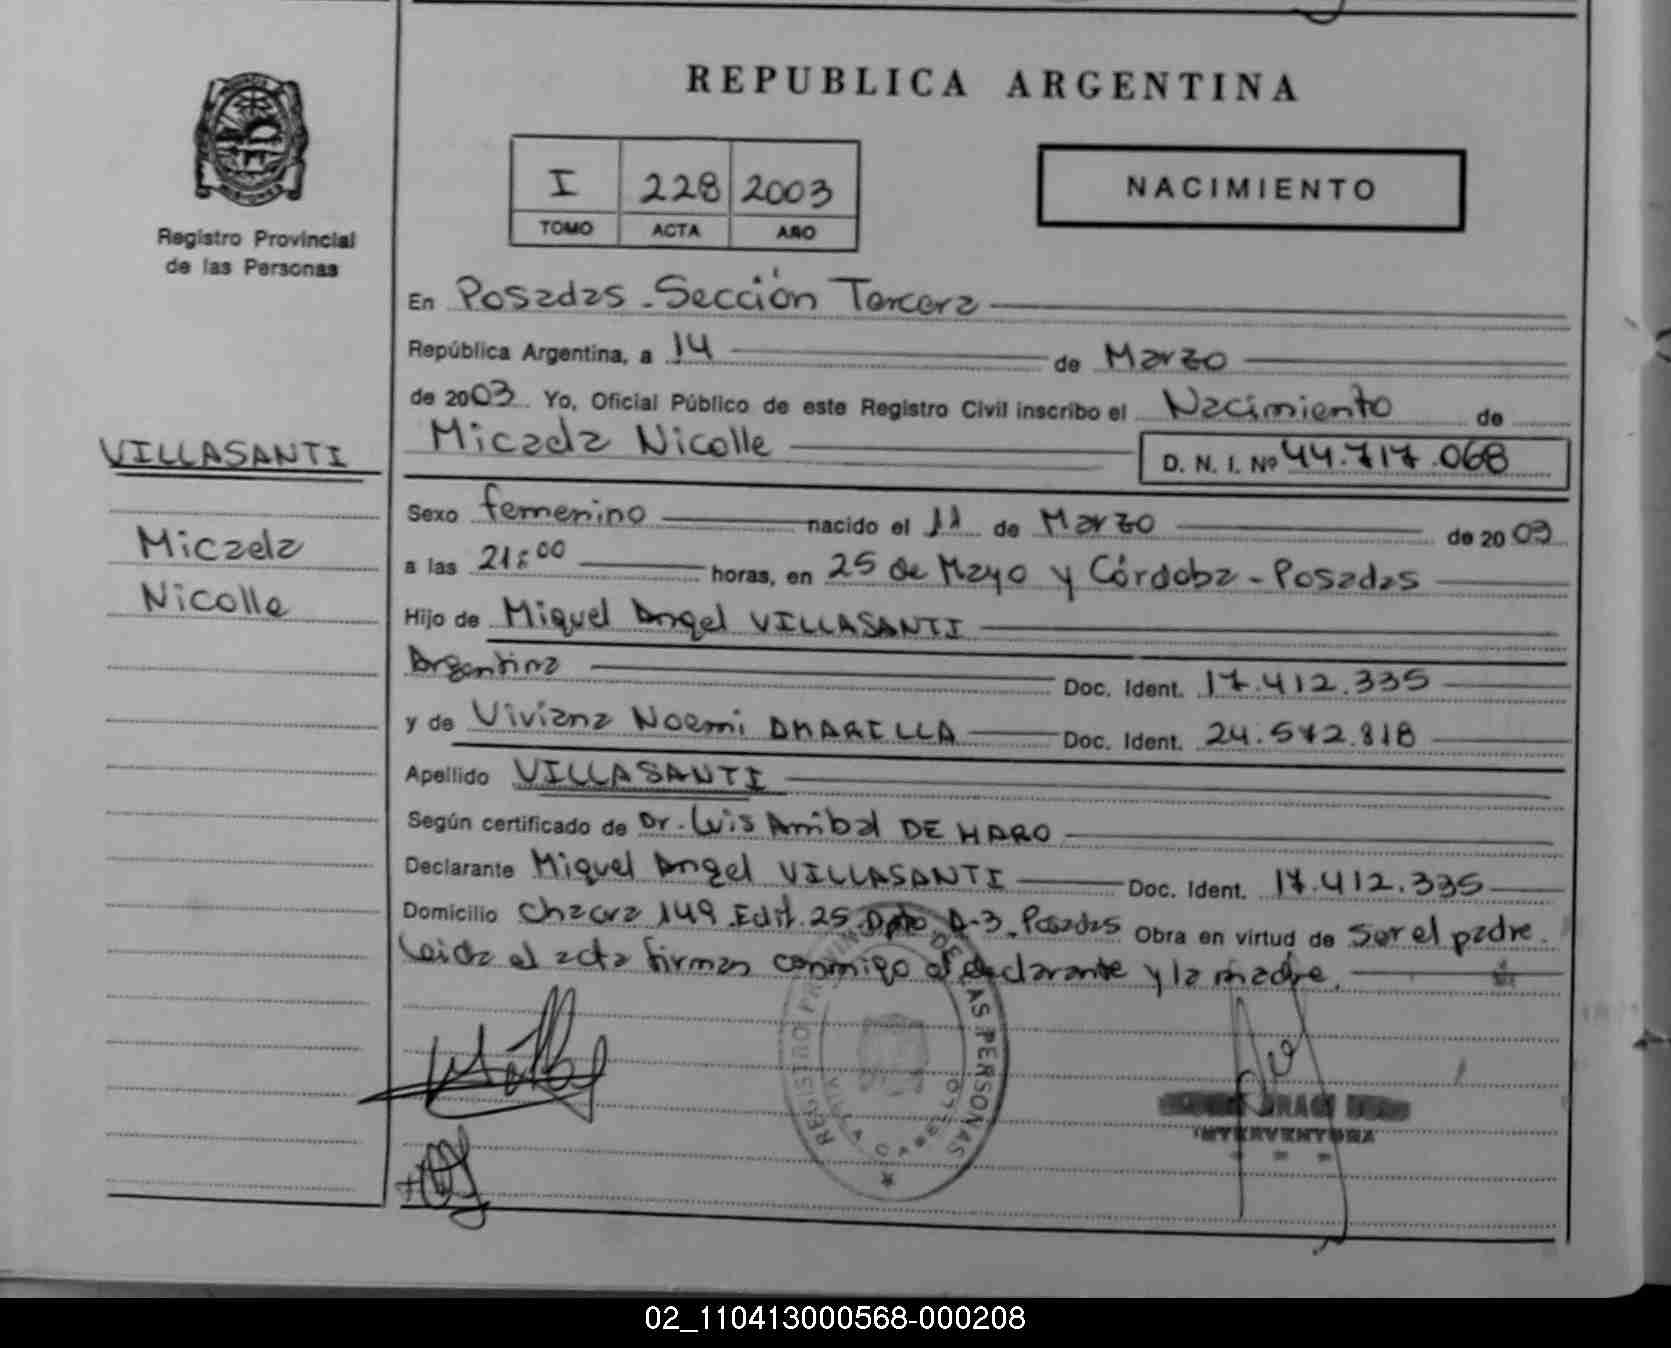 REPUBLICA ARGENTINA
I 228 2003
TOMO ACTA AÑO
NACIMIENTO
Registro Provincial
de las Personas
VILLASANTI
Micaela
Nicolle
En Posadas - Sección Tercera
República Argentina, a 14 de Marzo
de 2003 Yo, Oficial Público de este Registro Civil inscribo el Nacimiento de
Micaela Nicolle D. N. I. Nº 44.717.068
Sexo femenino nacido el 11 de Marzo de 2003
a las 21:00 horas, en 25 de Mayo y Córdoba - Posadas
Hijo de Miguel Angel VILLASANTI
Argentina Doc. Ident. 17.412.335
y de Viviana Noemi AMARILLA Doc. Ident. 24.572.818
Apellido VILLASANTI
Según certificado de Dr. Luis Anibal DE HARO
Declarante Miguel Angel VILLASANTI Doc. Ident. 17.412.335
Domicilio Chacra 149 Edif. 25 Dpto A-3. Posadas Obra en virtud de ser el padre.
Leida el acta firman conmigo el declarante y la madre.
REGISTRO PROVINCIAL DE LAS PERSONAS
INTERVENTORA
02_110413000568-000208